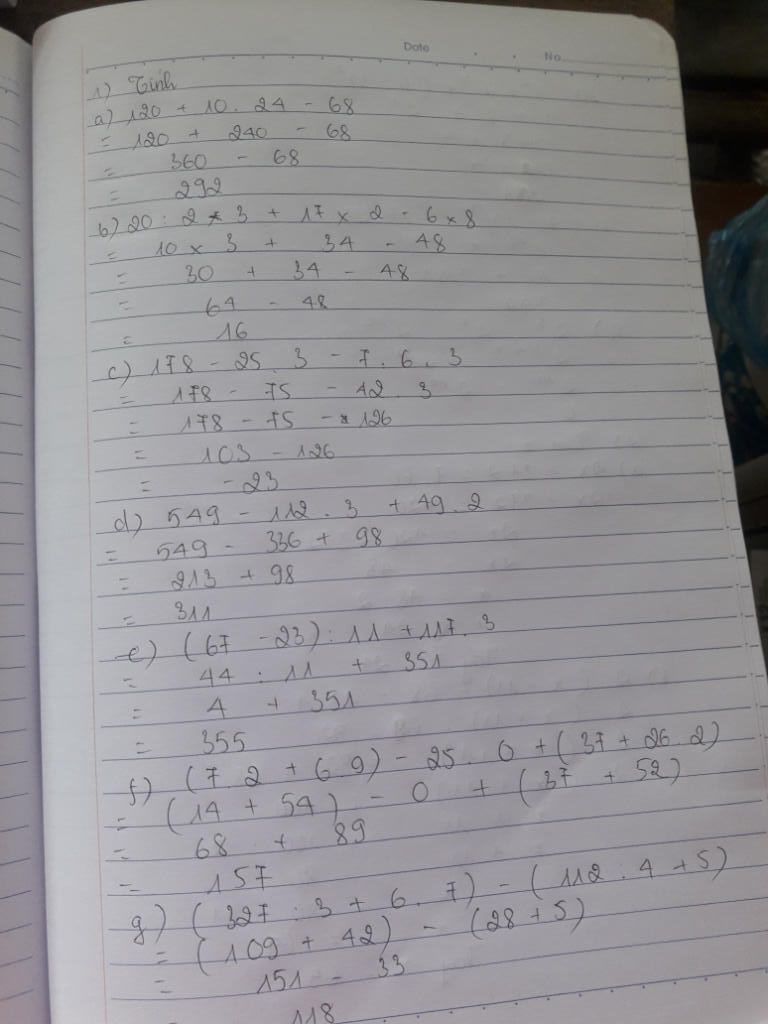 Date No
1) Tính
a) 120 + 10 . 24 - 68
= 120 + 240 - 68
= 360 - 68
= 292
b) 20 : 2 x 3 + 17 x 2 - 6 x 8
= 10 x 3 + 34 - 48
= 30 + 34 - 48
= 64 - 48
= 16
c) 178 - 25 . 3 - 7 . 6 . 3
= 178 - 75 - 42 . 3
= 178 - 75 - 126
= 103 - 126
= - 23
d) 549 - 112 . 3 + 49 . 2
= 549 - 336 + 98
= 213 + 98
= 311
e) (67 - 23) : 11 + 117 . 3
= 44 : 11 + 351
= 4 + 351
= 355
f) (7 . 2 + 6 . 9) - 25 . 0 + (37 + 26 . 2)
= (14 + 54) - 0 + (37 + 52)
= 68 + 89
= 157
g) (327 : 3 + 6 . 7) - (112 : 4 + 5)
= (109 + 42) - (28 + 5)
= 151 - 33
= 118